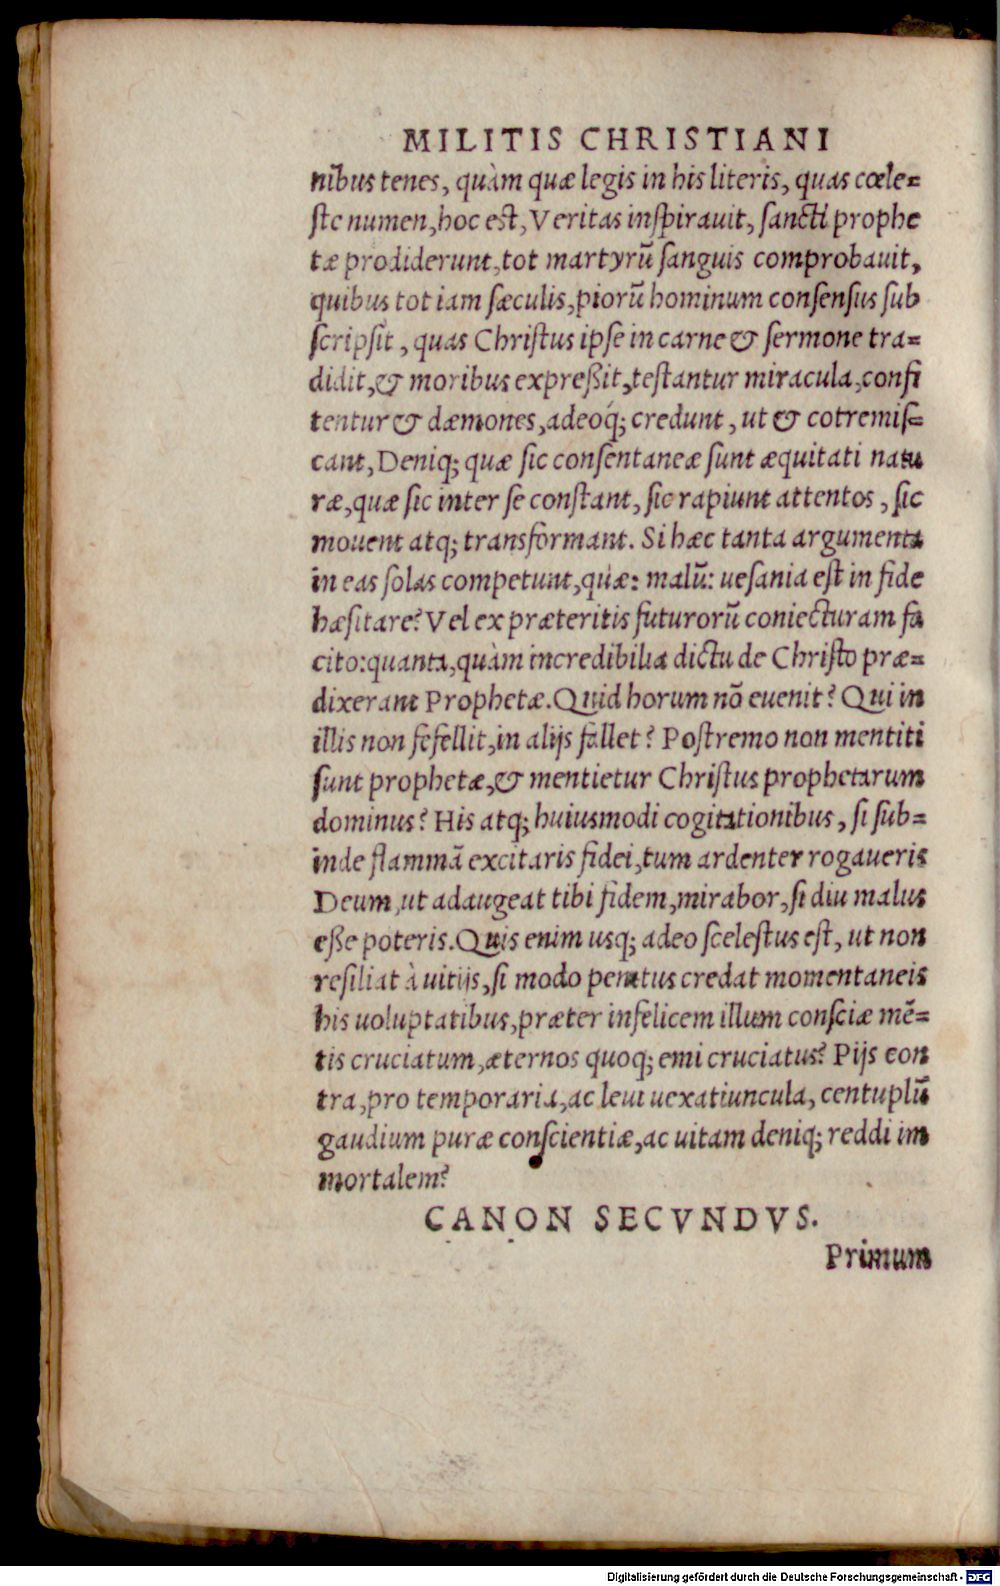 MILITIS CHRISTIANI
nibus tenes, quàm quæ legis in his literis, quas cœle=
ste numen, hoc est, Veritas inspirauit, sancti prophe
tæ prodiderunt, tot martyrũ sanguis comprobauit,
quibus tot iam sæculis, piorũ hominum consensus sub
scripsit, quas Christus ipse in carne & sermone tra=
didit, & moribus expreßit, testantur miracula, confi
tentur & dæmones, adeoq́; credunt, ut & cotremis=
cant, Deniq; quæ sic consentaneæ sunt æquitati natu
ræ, quæ sic inter se constant, sic rapiunt attentos, sic
mouent atq; transformant. Si hæc tanta argumenta
in eas solas competunt, quæ: malũ: uesania est in fide
hæsitare? Vel ex præteritis futurorũ coniecturam fa
cito: quanta, quàm incredibilia dictu de Christo præ=
dixerant Prophetæ. Quid horum nõ euenit? Qui in
illis non fefellit, in alijs fallet? Postremo non mentiti
sunt prophetæ, & mentietur Christus prophetarum
dominus? His atq; huiusmodi cogitationibus, si sub=
inde flammã excitaris fidei, tum ardenter rogaueris
Deum, ut adaugeat tibi fidem, mirabor, si diu malus
eße poteris. Quis enim usq; adeo scelestus est, ut non
resiliat à uitijs, si modo penitus credat momentaneis
his uoluptatibus, præter infelicem illum consciæ mẽ=
tis cruciatum, æternos quoq; emi cruciatus? Pijs con
tra, pro temporaria, ac leui uexatiuncula, centuplũ
gaudium puræ conscientiæ, ac uitam deniq; reddi im
mortalem?
CANON SECVNDVS.
Primum
Digitalisierung gefördert durch die Deutsche Forschungsgemeinschaft - DFG